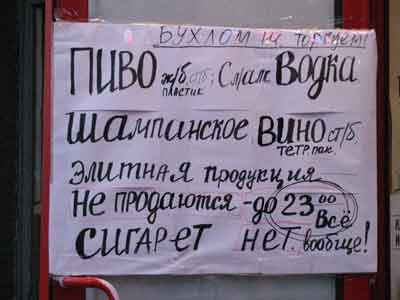 БУХЛОМ не торгуем!
ПИВО ж/б, ст/б, пластик; Сл/алк Водка
Шампинское вино ст/б, тетр пак.
Элитная продукция
Не продаются - до 23 00 Всё
СИГАРЕТ НЕТ. вообще!